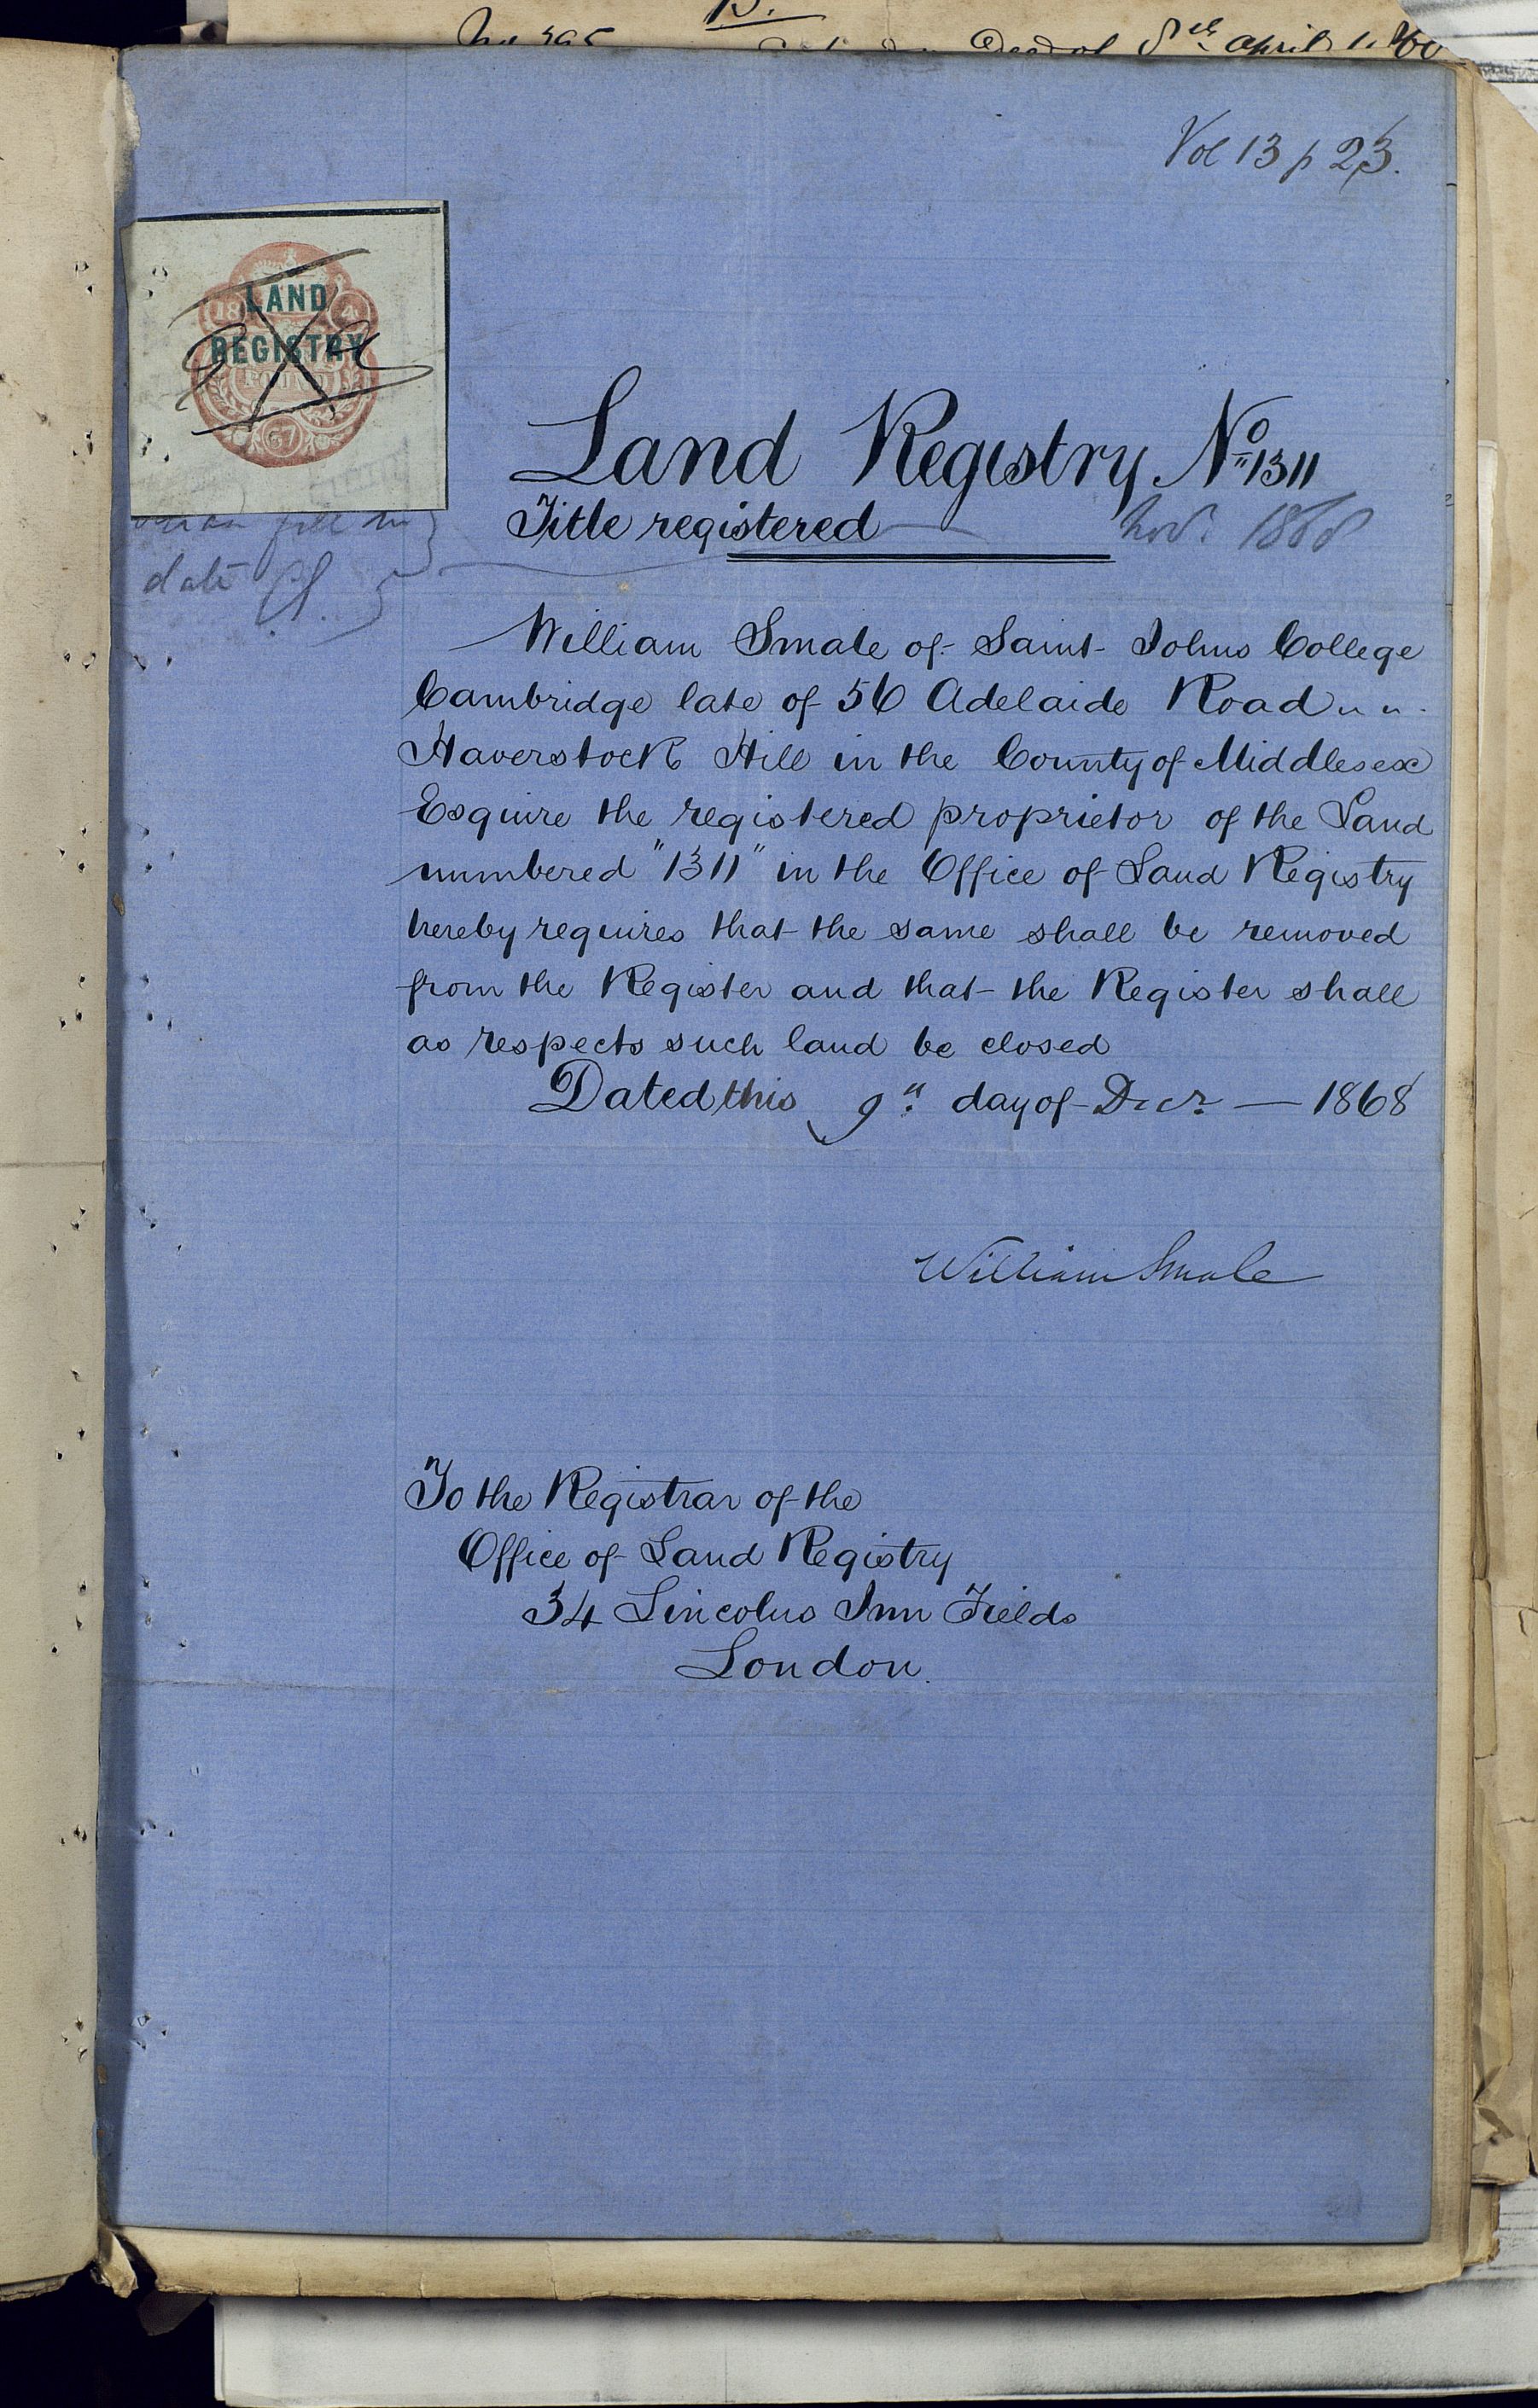 Dec of 8th April 1860
Vol 13 p 23.
LAND
18 4
REGISTRY
POUND
67
Land Registry No. 1311
Title registered Nov. 1868
fill in
date
William Smale of Saint Johns College
Cambridge late of 56 Adelaide Road " "
Haverstock Hill in the County of Middlesex
Esquire the registered proprietor of the Land
numbered "1311" in the Office of Land Registry
hereby requires that the same shall be removed
from the Register and that the Register shall
as respects such land be closed
Dated this 9" day of Decr — 1868
William Smale
To the Registrar of the
Office of Land Registry
34 Lincolns Inn Fields
London.